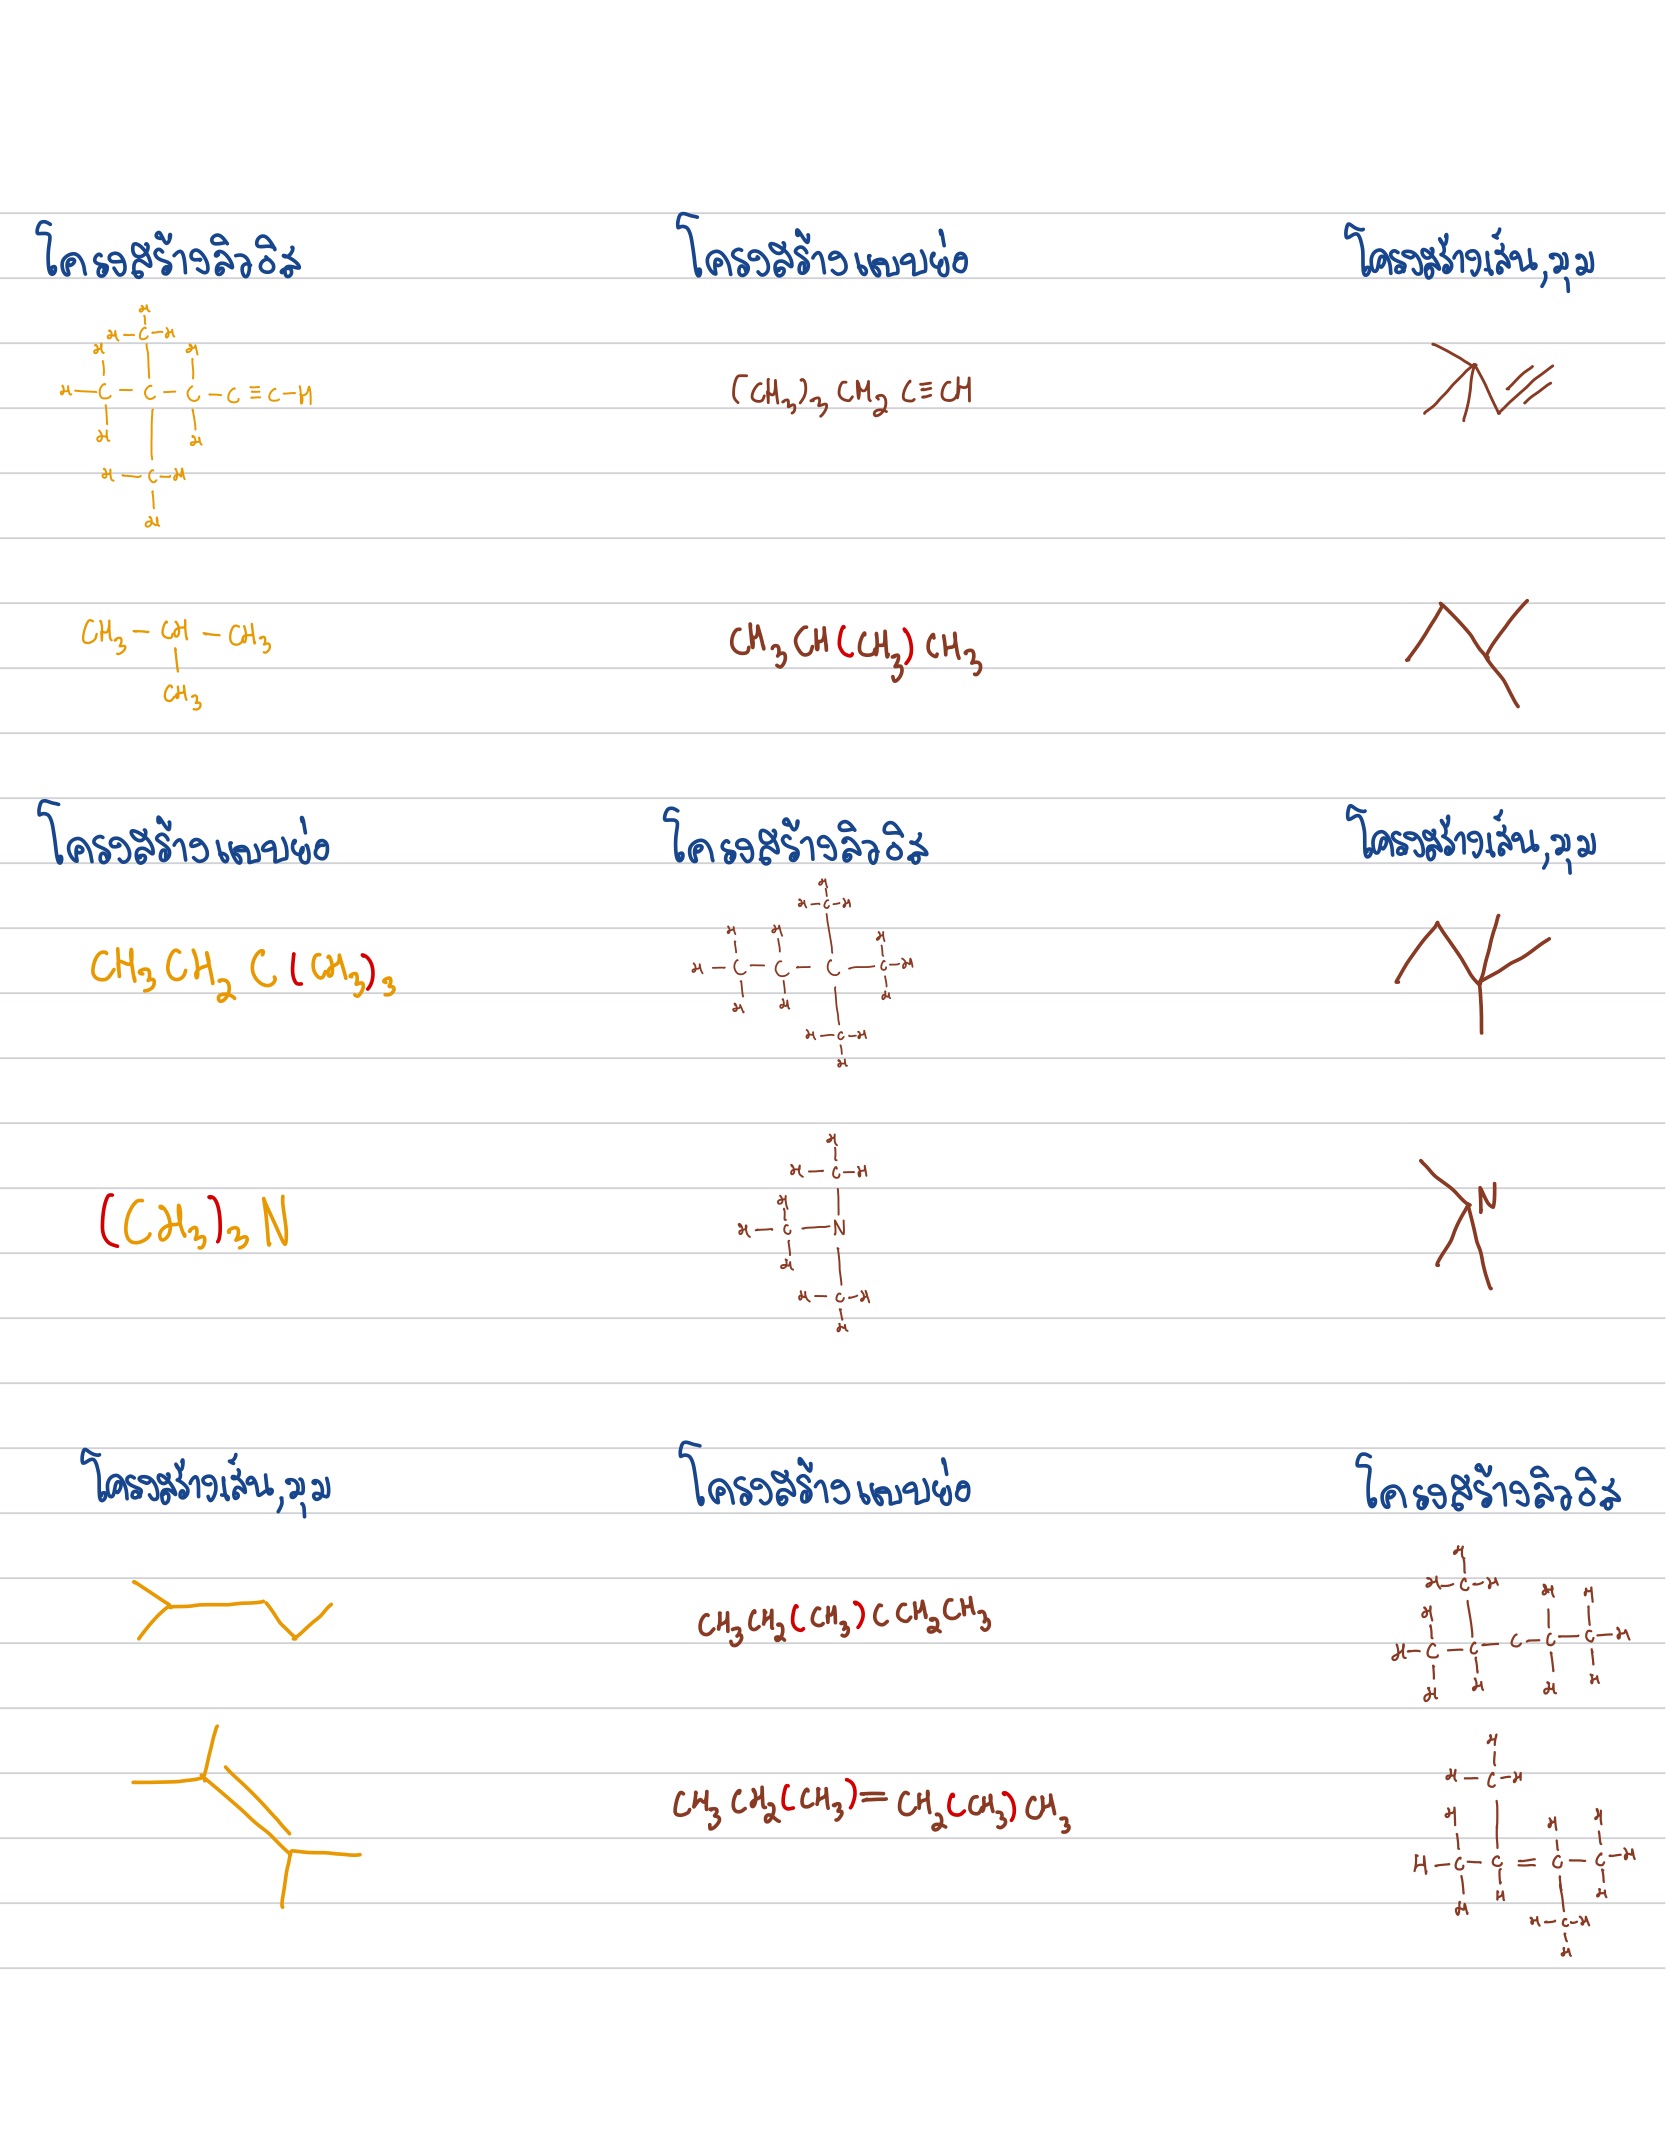 โครงสร้างลิวอิส โครงสร้างแบบย่อ โครงสร้างเส้น,มุม
H
H-C-H
H H
H-C-C-C-C≡C-H (CH₃)₃CH₂C≡CH
H H
H-C-H
H
CH₃-CH-CH₃ CH₃CH(CH₃)CH₃
CH₃
โครงสร้างแบบย่อ โครงสร้างลิวอิส โครงสร้างเส้น,มุม
H
H-C-H
H H H
CH₃CH₂C(CH₃)₃ H-C-C-C-C-H
H H H
H-C-H
H
H
H-C-H
H
(CH₃)₃N H-C-N N
H
H-C-H
H
โครงสร้างเส้น,มุม โครงสร้างแบบย่อ โครงสร้างลิวอิส
H
H-C-H H H
H
CH₃CH₂(CH₃)CCH₂CH₃ H-C-C-C-C-C-H
H H H H
H
H-C-H
H H H
CH₃CH₂(CH₃)=CH₂(CH₃)CH₃ H-C-C=C-C-H
H H H
H-C-H
H